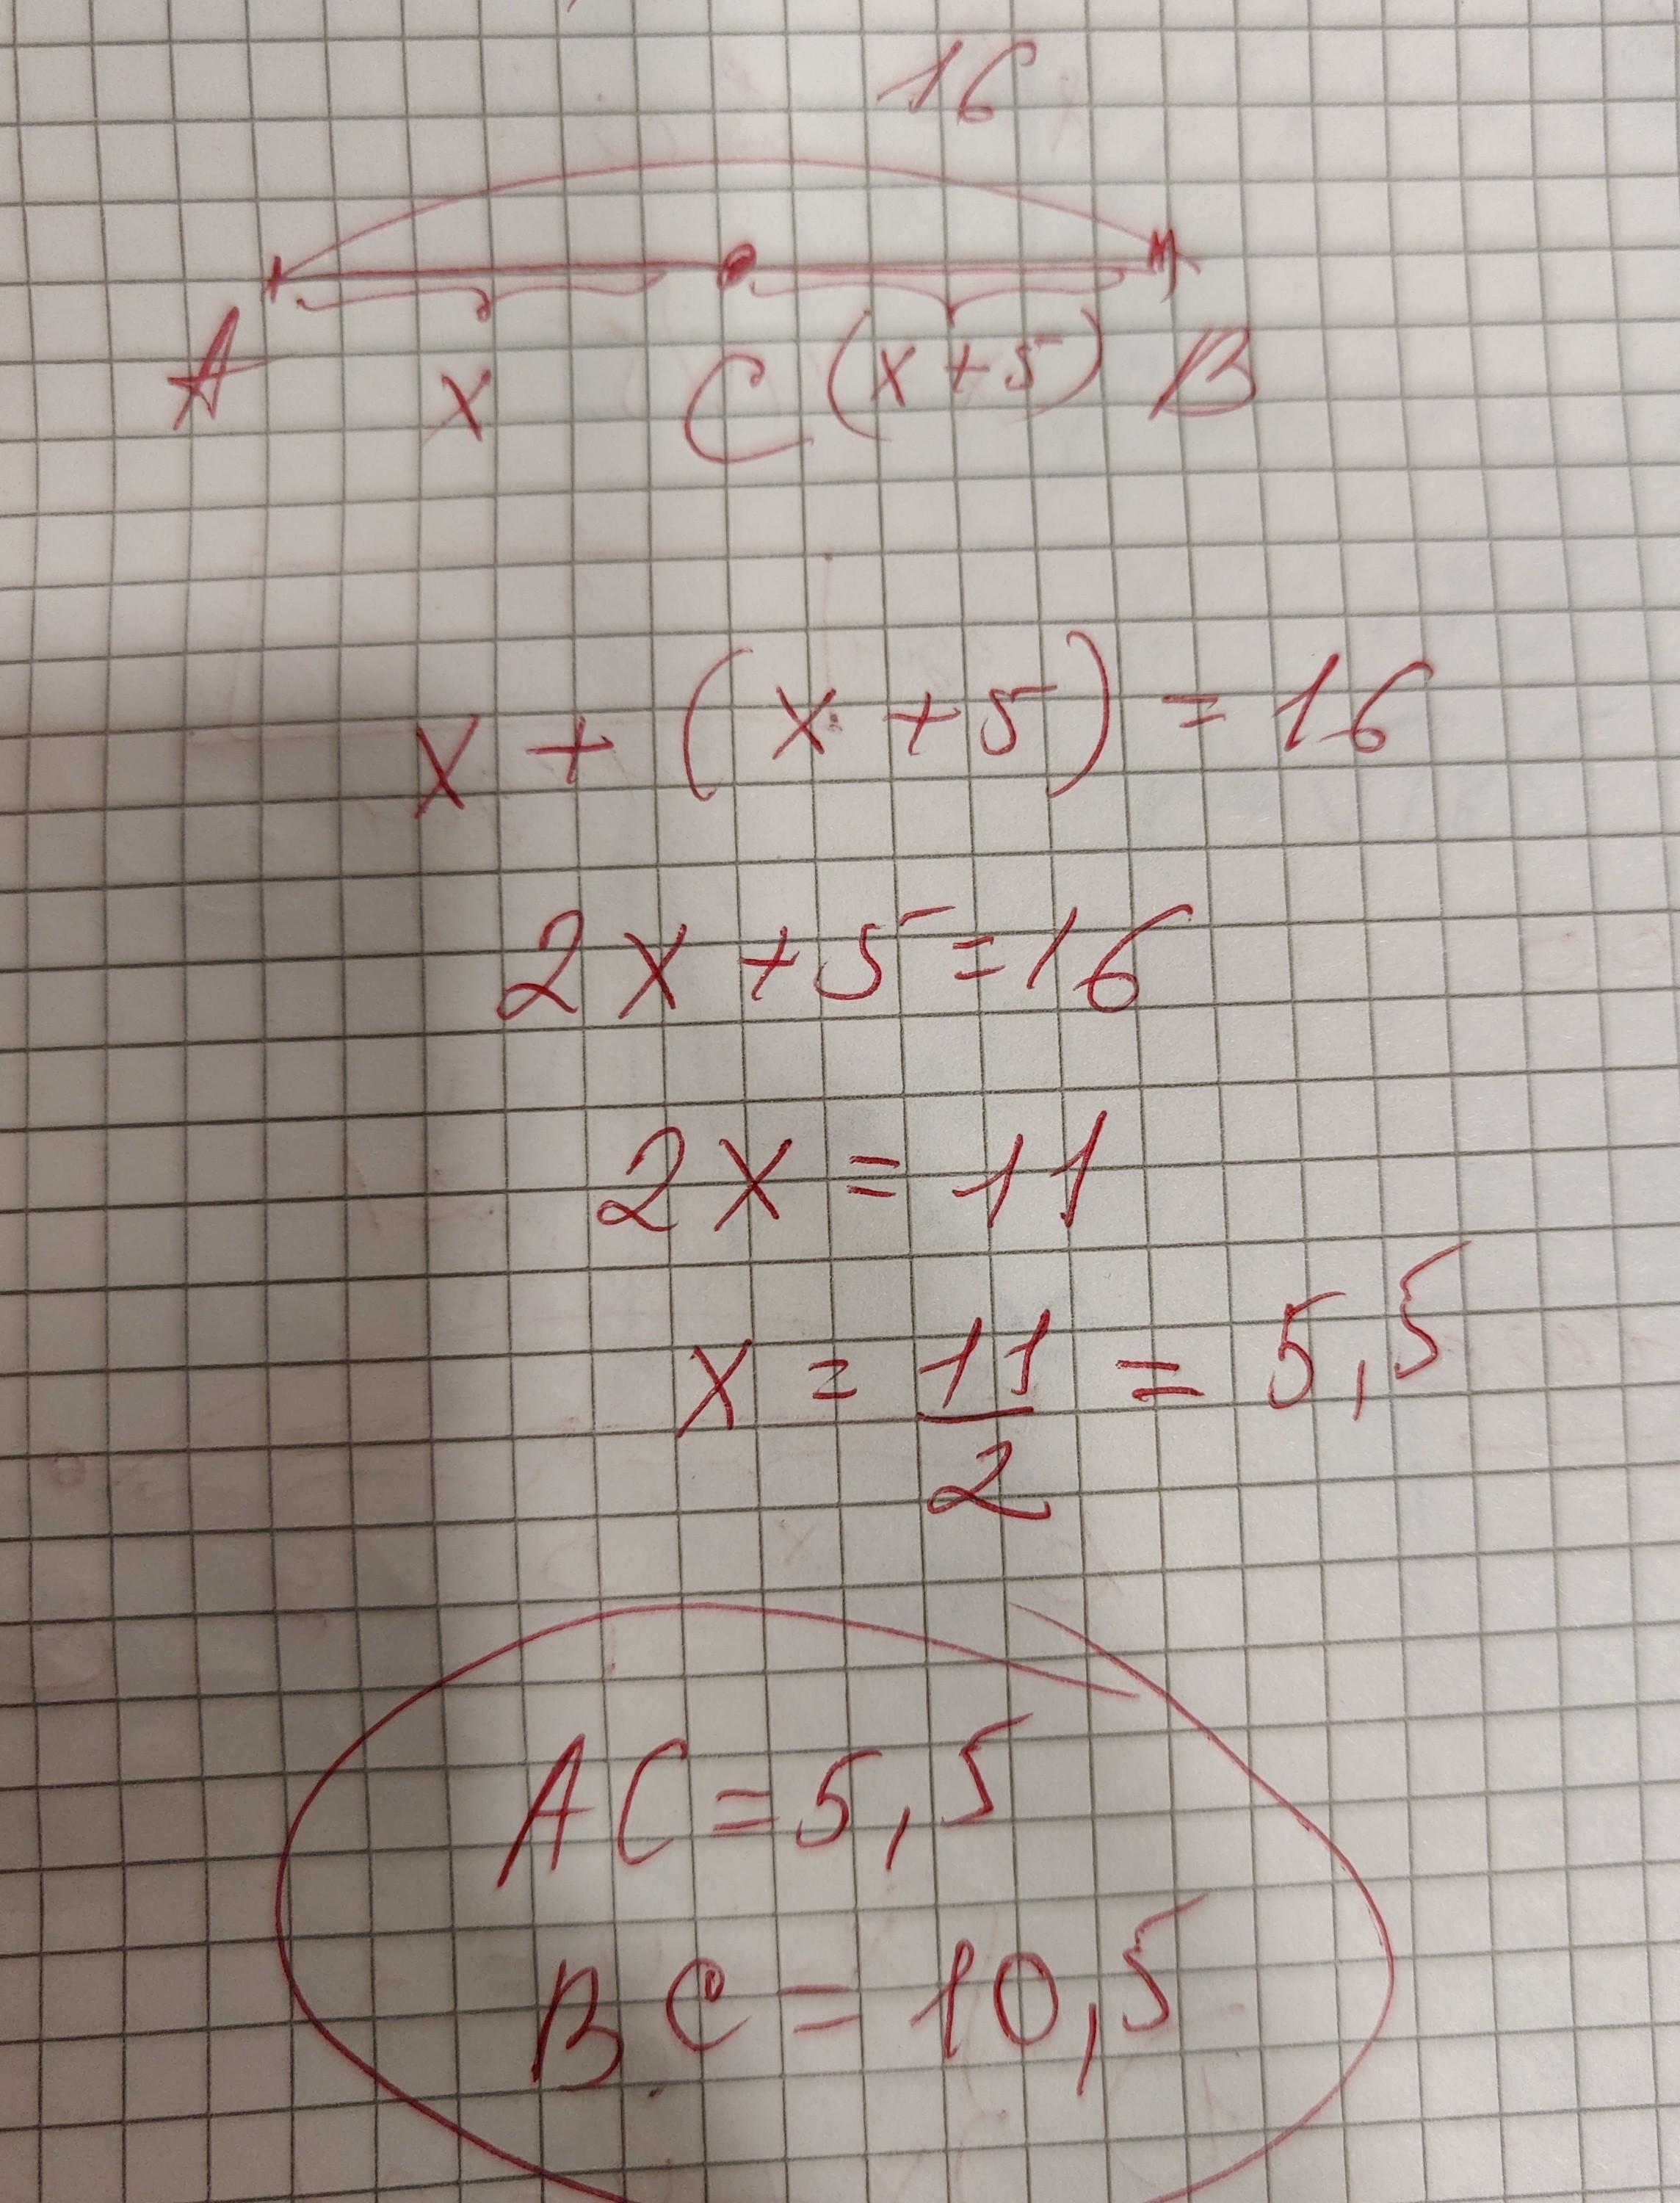 16
A x C (x+5) B
x + (x + 5) = 16
2x + 5 = 16
2x = 11
x = 11/2 = 5,5
AC = 5,5
BC = 10,5